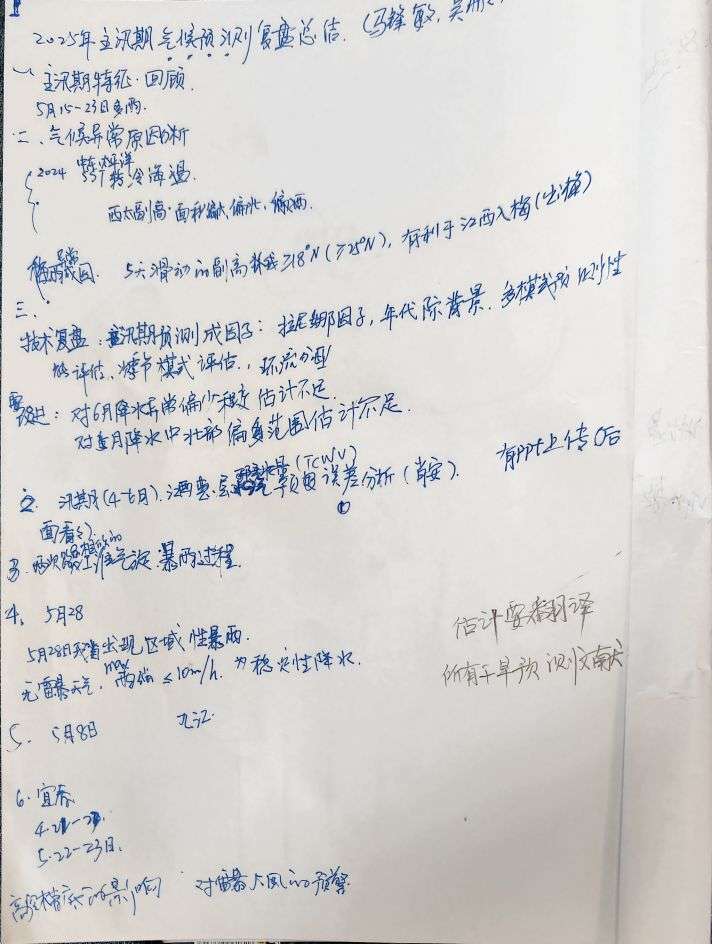 2025年主汛期气候预测复盘总结. (马锋敏, 吴
一、主汛期特征·回顾.
5月15-23日多雨.
二、气候异常原因分析
2024 中东太平洋 转冷海温.
西太副高·面积偏大, 偏北, 偏西
成因. 5天滑动的副高脊线≥18°N (≥25°N), 有利于江西入梅(出梅)
三.
技术复盘: 主汛期预测成因子: 拉尼娜因子, 年代际背景. 多模式预测性
能评估、季节模式评估., 环流分型
对6月降水异常偏少程度估计不足.
对 月降水中北部偏多范围估计不足.
2. 汛期(4-七月). 江西 层 (TCWV) 预日误差分析 (肖安). 有ppt上传(后
面看).
3. 两次路径相似的 气旋·暴雨过程.
4. 5月28
5月28日我省出现区域性暴雨.
无雷暴天气, max雨强≤10m/h. 为稳定性降水.
估计要翻译
所有干旱预测文献
5. 5月8日 九江.
6. 宜春.
5.22-23日.
高空槽底 的影响 对雷暴大风的预警.